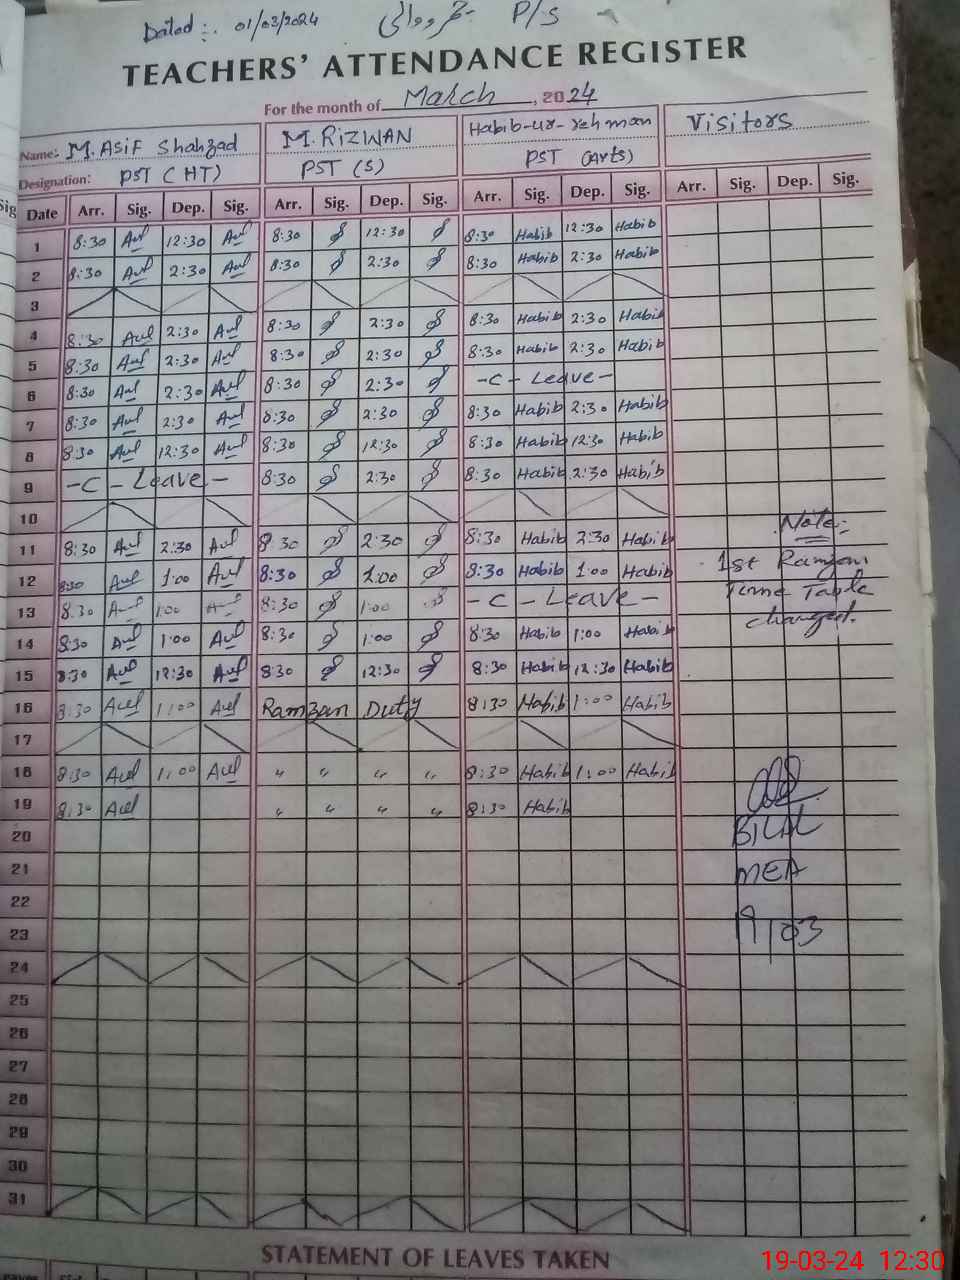 Dated :. 01/03/2024 P/S
TEACHERS' ATTENDANCE REGISTER
For the month of March, 2024
Name: M. Asif Shahzad M. RIZWAN Habib-ur-rehman Visitors
Designation: PST (HT) PST (S) PST (Arts)
Date Arr. Sig. Dep. Sig. Arr. Sig. Dep. Sig. Arr. Sig. Dep. Sig. Arr. Sig. Dep. Sig.
1 8:30 12:30 8:30 12:30 8:30 Habib 12:30 Habib
2 8:30 2:30 8:30 2:30 8:30 Habib 2:30 Habib
3
4 8:30 2:30 8:30 2:30 8:30 Habib 2:30 Habib
5 8:30 2:30 8:30 2:30 8:30 Habib 2:30 Habib
6 8:30 2:30 8:30 2:30 -C- Leave-
7 8:30 2:30 8:30 2:30 8:30 Habib 2:30 Habib
8 8:30 12:30 8:30 12:30 8:30 Habib 12:30 Habib
9 -C- Leave- 8:30 2:30 8:30 Habib 2:30 Habib
10
11 8:30 2:30 8:30 2:30 8:30 Habib 2:30 Habib
12 8:30 1:00 8:30 1:00 8:30 Habib 1:00 Habib
13 8:30 1:00 8:30 1:00 -C- Leave-
14 8:30 1:00 8:30 1:00 8:30 Habib 1:00 Habib
15 8:30 12:30 8:30 12:30 8:30 Habib 12:30 Habib
16 8:30 1:00 Ramzan Duty 8:30 Habib 1:00 Habib
17
18 8:30 1:00 " " " " 8:30 Habib 1:00 Habib
19 8:30 " " " " 8:30 Habib
20
21
22
23
24
25
26
27
28
29
30
31
Note:-
1st Ramzan
Time Table
changed.
BILAL
MEA
19/03
STATEMENT OF LEAVES TAKEN
19-03-24 12:30